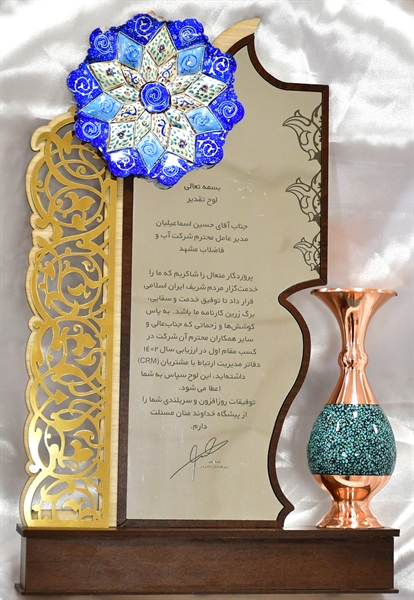 بسمه تعالی
لوح تقدیر
جناب آقای حسین اسماعیلیان
مدیر عامل محترم شرکت آب و
فاضلاب مشهد
پروردگار متعال را شاکریم که ما را
خدمت‌گزار مردم شریف ایران اسلامی
قرار داد تا توفیق خدمت و سقایی،
برگ زرین کارنامه ما باشد. به پاس
کوشش‌ها و زحماتی که جناب‌عالی و
سایر همکاران محترم آن شرکت در
کسب مقام اول در ارزیابی سال ۱۴۰۲
دفاتر مدیریت ارتباط با مشتریان (CRM)
داشته‌اید، این لوح سپاس به شما
اعطا می شود.
توفیقات روزافزون و سربلندی شما را
از پیشگاه خداوند منان مسئلت
دارم.